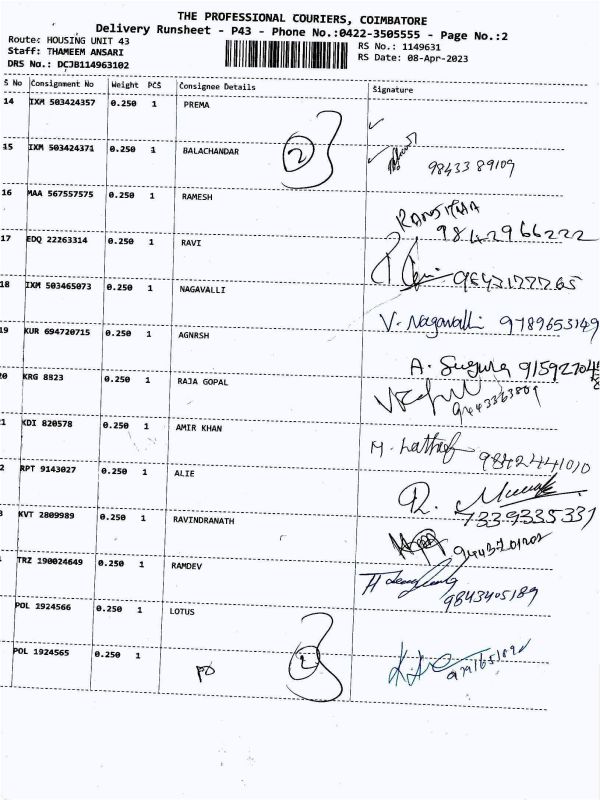 THE PROFESSIONAL COURIERS, COIMBATORE
Delivery Runsheet - P43 - Phone No.:0422-3505555 - Page No.:2
Route: HOUSING UNIT 43
Staff: THAMEEM ANSARI
DRS No.: DCJB114963102
RS No.: 1149631
RS Date: 08-Apr-2023
S No Consignment No Weight PCS Consignee Details Signature
14 IXM 503424357 0.250 1 PREMA
2
15 IXM 503424371 0.250 1 BALACHANDAR 98433 89109
16 MAA 567557575 0.250 1 RAMESH RANJITHA 9842966222
17 EDQ 22263314 0.250 1 RAVI
18 IXM 503465073 0.250 1 NAGAVALLI V. Nagavalli 9789653149
19 KUR 694720715 0.250 1 AGNRSH A. Suguna
20 KRG 8823 0.250 1 RAJA GOPAL 9443363809
21 KDI 820578 0.250 1 AMIR KHAN M. Latheef 9842441010
2 RPT 9143027 0.250 1 ALIE 7339335331
3 KVT 2809989 0.250 1 RAVINDRANATH
TRZ 190024649 0.250 1 RAMDEV 9843405189
POL 1924566 0.250 1 LOTUS
2
POL 1924565 0.250 1 PO